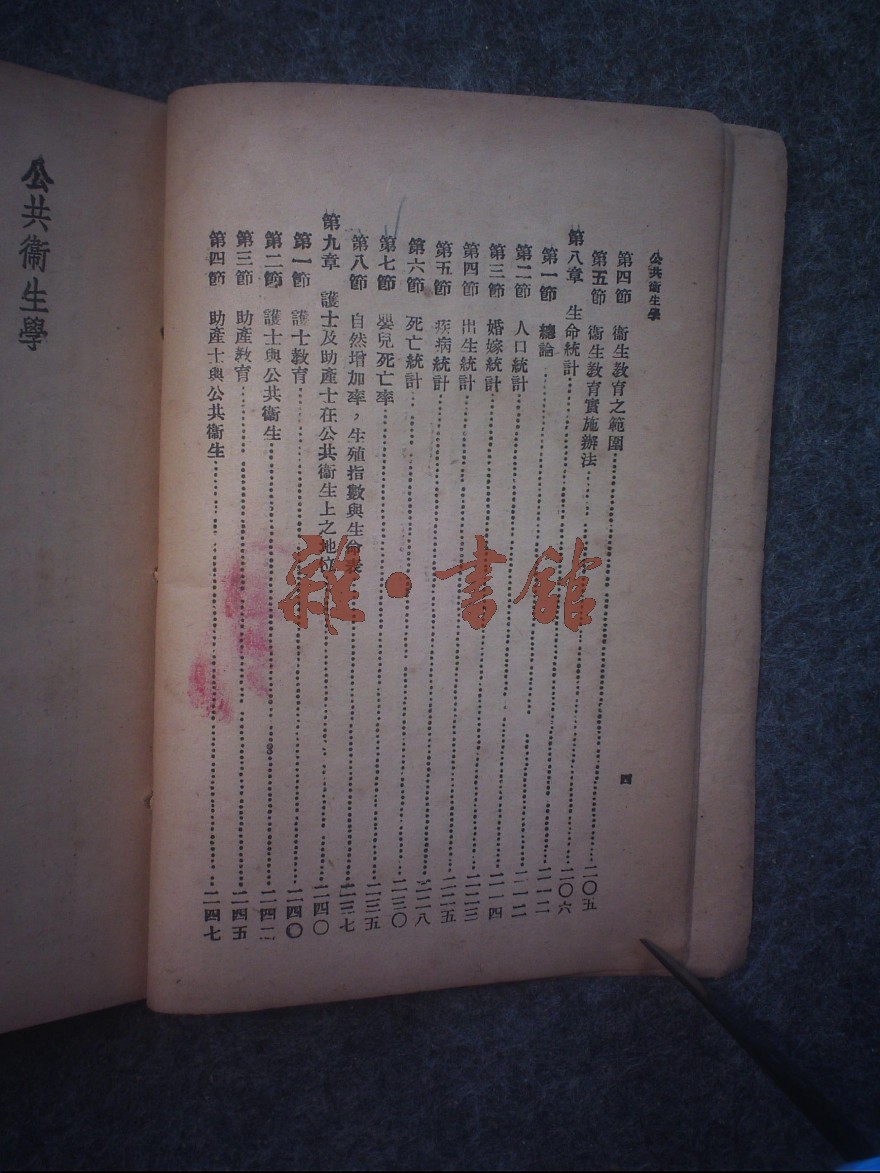 公共衞生學
四
第四節 衞生教育之範圍……二〇五
第五節 衞生教育實施辦法……二〇六
第八章 生命統計……二一二
第一節 總論……二一二
第二節 人口統計……二一四
第三節 婚嫁統計……二二三
第四節 出生統計……二二五
第五節 疾病統計……二二八
第六節 死亡統計……二三〇
第七節 嬰兒死亡率……二三五
第八節 自然增加率，生殖指數與生命表……二三七
第九章 護士及助產士在公共衞生上之地位……二四〇
第一節 護士教育……二四〇
第二節 護士與公共衞生……二四二
第三節 助產教育……二四五
第四節 助產士與公共衞生……二四七
公共衞生學
雜·書館